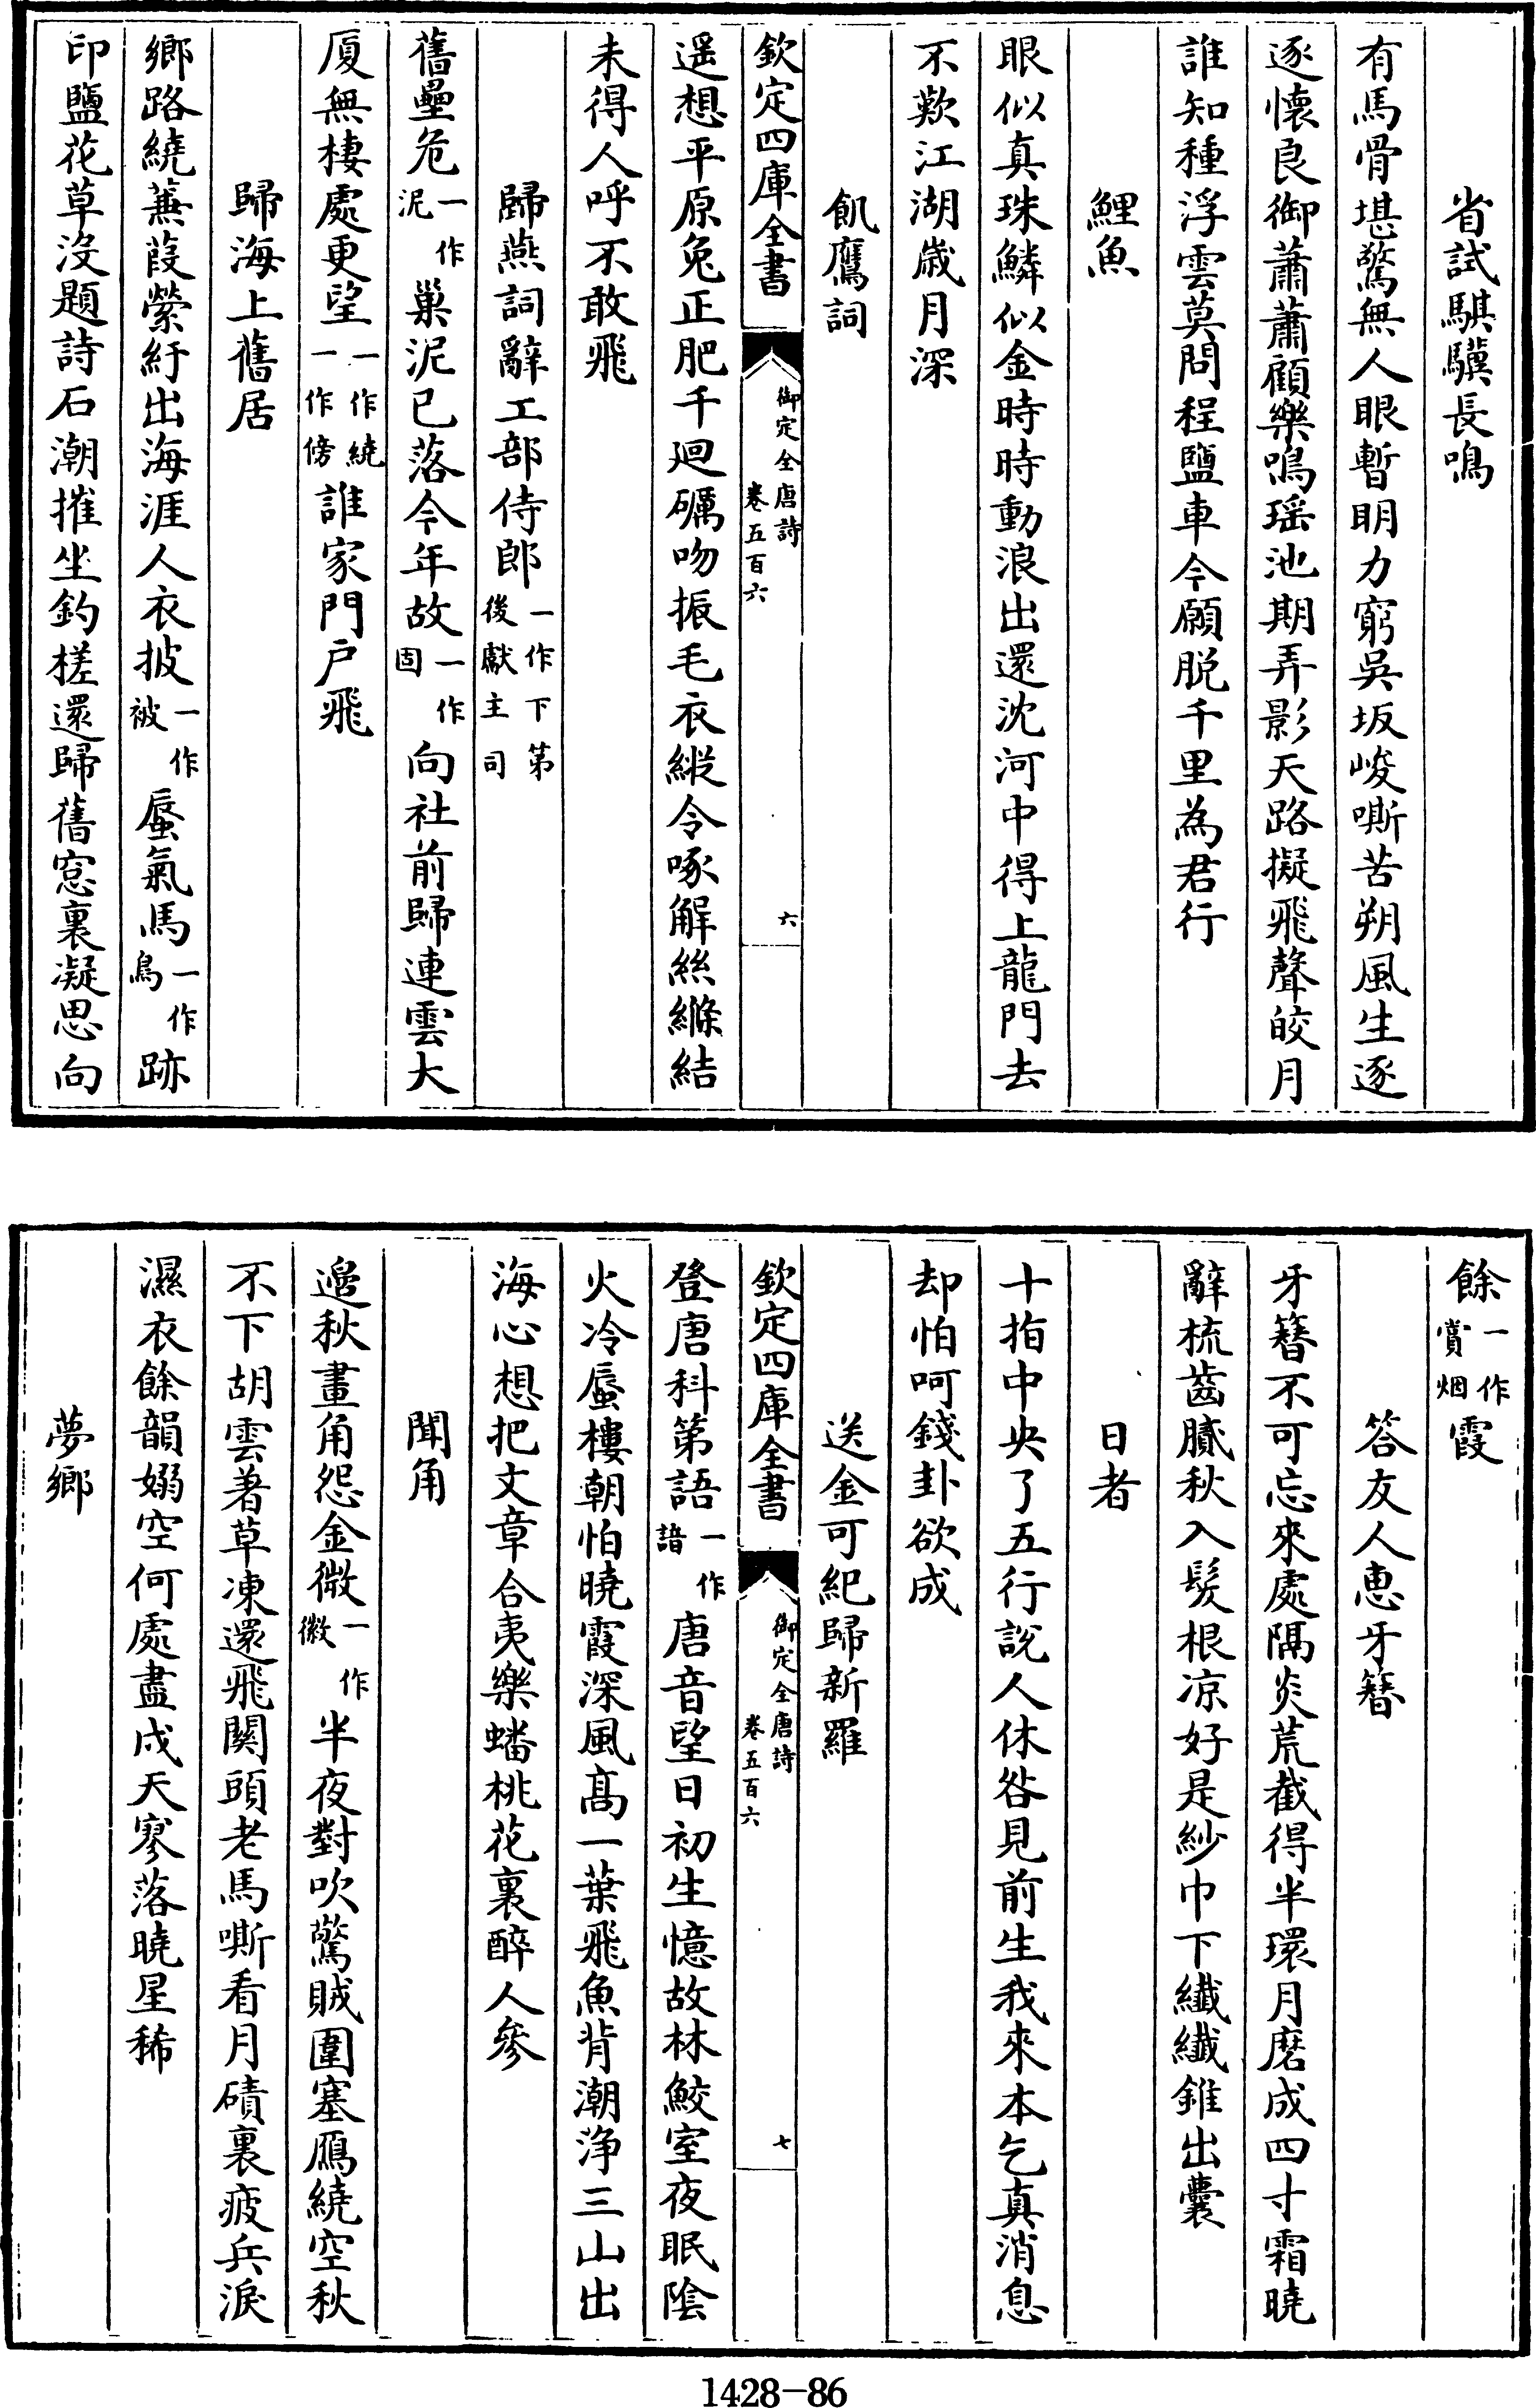 省試騏驥長鳴
有馬骨堪驚無人眼暫明力窮吳坂峻嘶苦朔風生逐
逐懷良御蕭蕭顧樂鳴瑶池期弄影天路擬飛聲皎月
誰知種浮雲莫問程鹽車今願脱千里為君行
鯉魚
眼似真珠鱗似金時時動浪出還沈河中得上龍門去
不歎江湖歲月深
飢鷹詞
欽定四庫全書 御定全唐詩卷五百六 六
遥想平原兔正肥千廻礪吻振毛衣縱令啄解絲縧結
未得人呼不敢飛
歸燕詞辭工部侍郎一作下第後獻主司
舊壘危一作泥巢泥已落今年故一作固向社前歸連雲大
厦無棲處更望一作繞一作傍誰家門户飛
歸海上舊居
鄉路繞蒹葭縈紆出海涯人衣披一作被蜃氣馬一作鳥跡
印鹽花草沒題詩石潮摧坐釣槎還歸舊窓裏凝思向
餘一作賞烟霞
答友人惠牙簪
牙簪不可忘來處隔炎荒截得半環月磨成四寸霜曉
辭梳齒膩秋入髮根凉好是紗巾下纖纖錐出囊
日者
十指中央了五行説人休咎見前生我來本乞真消息
却怕呵錢卦欲成
送金可紀歸新羅
欽定四庫全書 御定全唐詩卷五百六 七
登唐科第語一作諳唐音望日初生憶故林鮫室夜眠陰
火冷蜃樓朝怕曉霞深風髙一葉飛魚背潮浄三山出
海心想把文章合夷樂蟠桃花裏醉人參
聞角
邉秋畫角怨金微一作徽半夜對吹驚賊圍塞鴈繞空秋
不下胡雲著草凍還飛關頭老馬嘶看月磧裏疲兵淚
濕衣餘韻嫋空何處盡戍天寥落曉星稀
夢鄉
1428-86